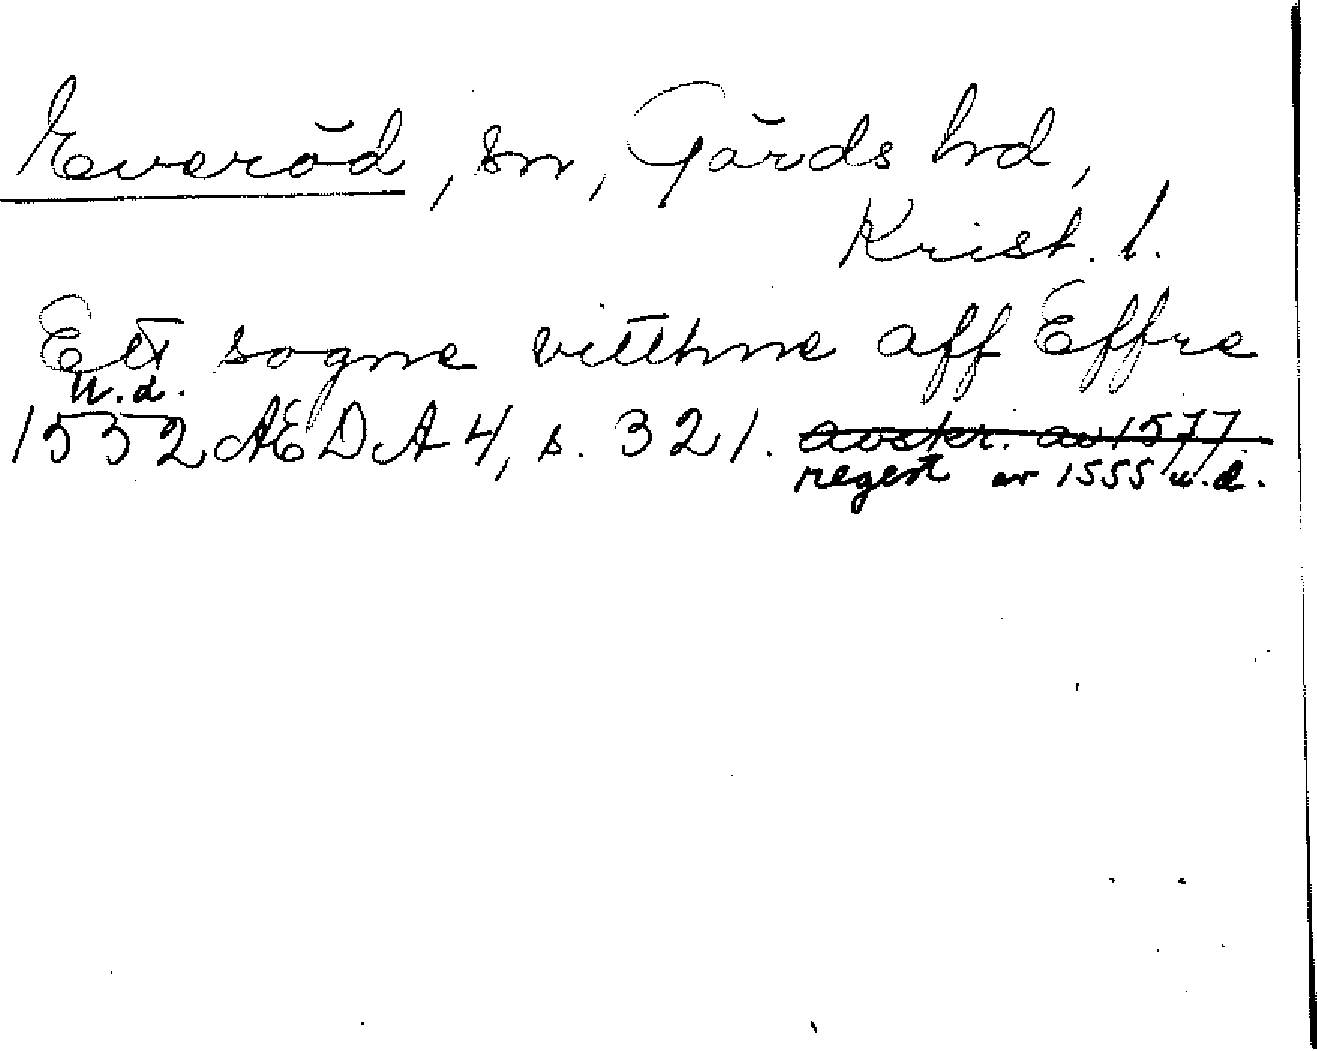 Everöd, sn, Gärds hd,
Krist. l.
Ett sogne vitthne aff Effre
u.d.
1552 AEDA 4, s. 321. avskr. av 1577
regest av 1555 u.d.